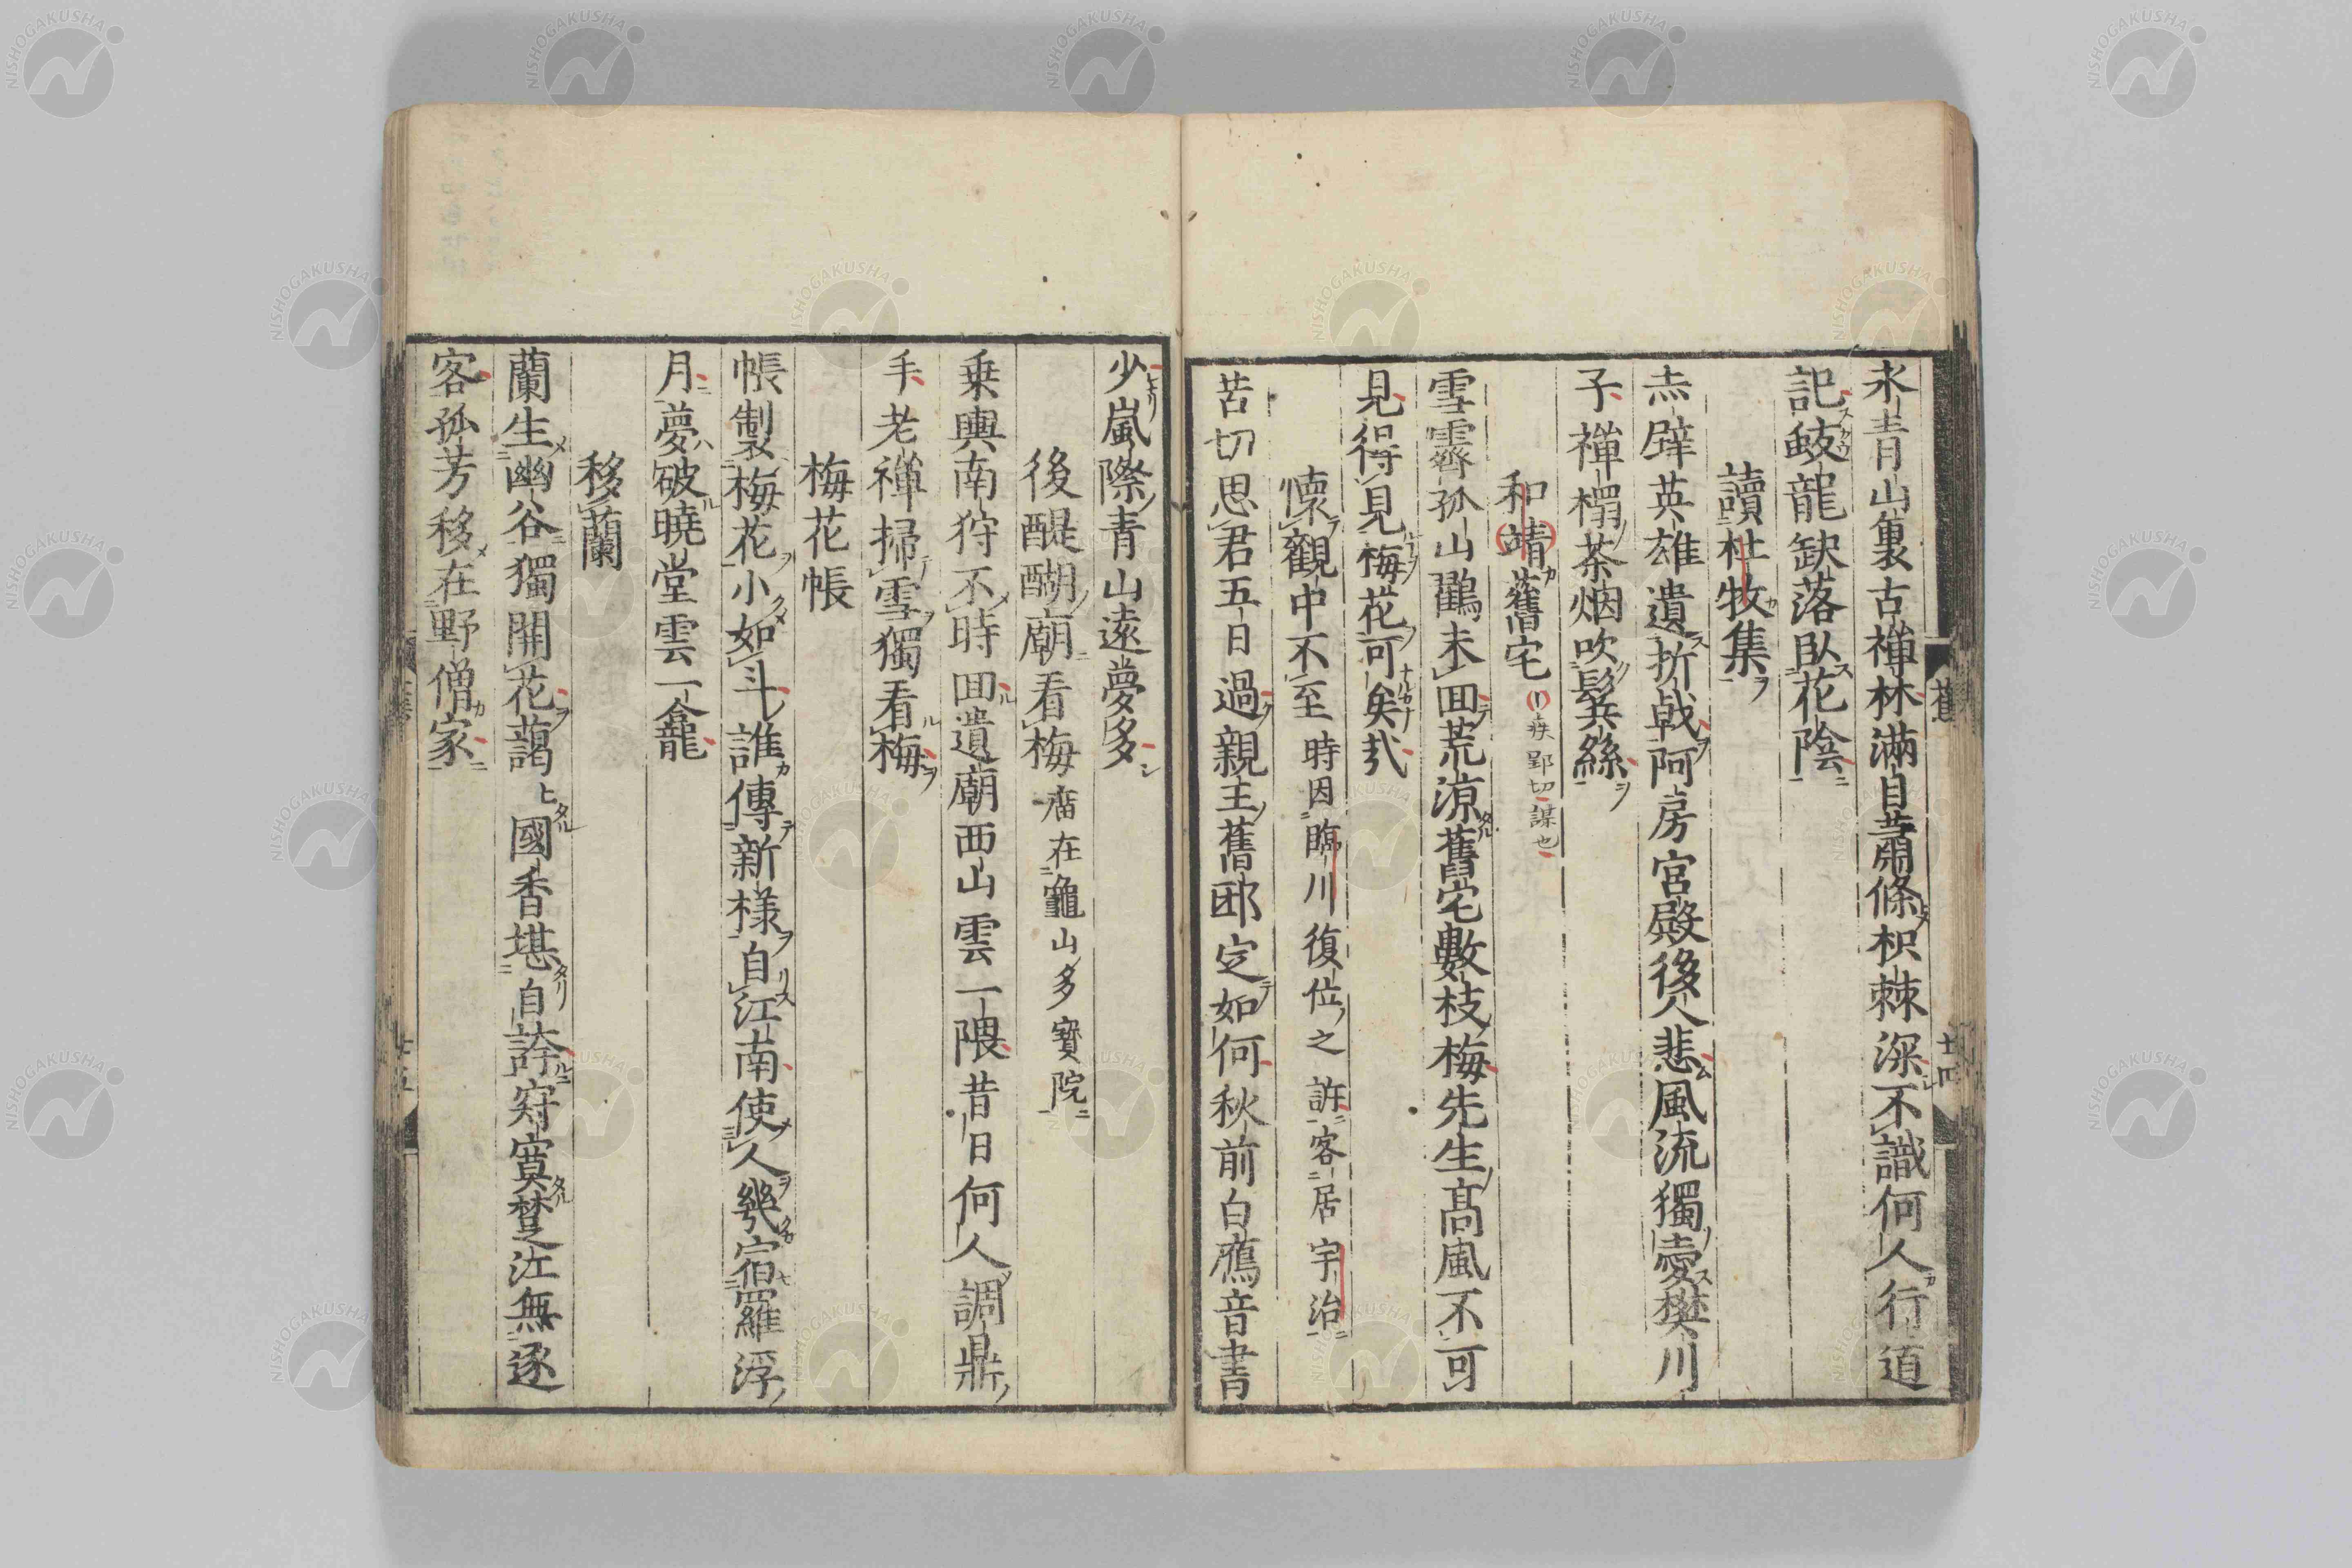 水青山裏古禅林滿目蕭條枳棘深不識何人行道
記鼓龍缺落臥花陰
讀杜牧集
赤壁英雄遺折戟阿房宮殿後人悲風流獨愛樊川
子禅榻茶烟吹鬢絲
和靖舊宅
雪霽孤山鸛未回荒凉舊宅數枝梅先生髙風不可
見得見梅花可矣哉
懷觀中不至時因臨川復位之訴客居宇治
苦切思君五日過親王舊邸定如何秋前白鴈音書
少嵐際青山遠夢多
後醍醐廟看梅廟在龜山多寳院
乗輿南狩不時回遺廟西山雲一隈昔日何人調鼎
手老禅掃雪獨看梅
梅花帳
帳製梅花小如斗誰傳新様自江南使人幾宿羅浮
月夢破曉堂雲一龕
移蘭
蘭生幽谷獨開花藹〻國香堪自誇寂寞楚江無逐
客孤芳移在野僧家